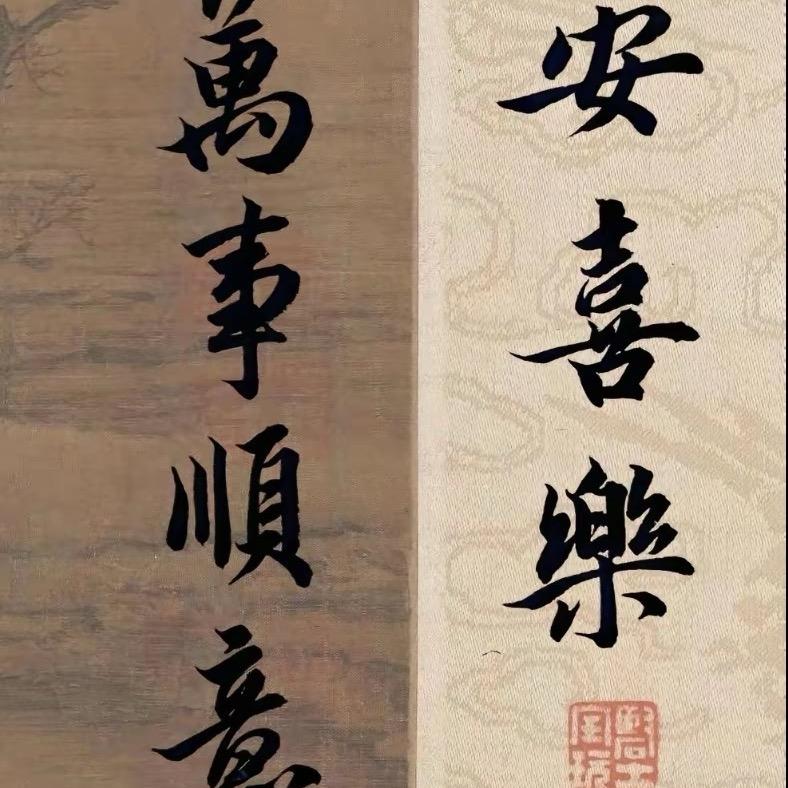 安喜樂
萬事順意